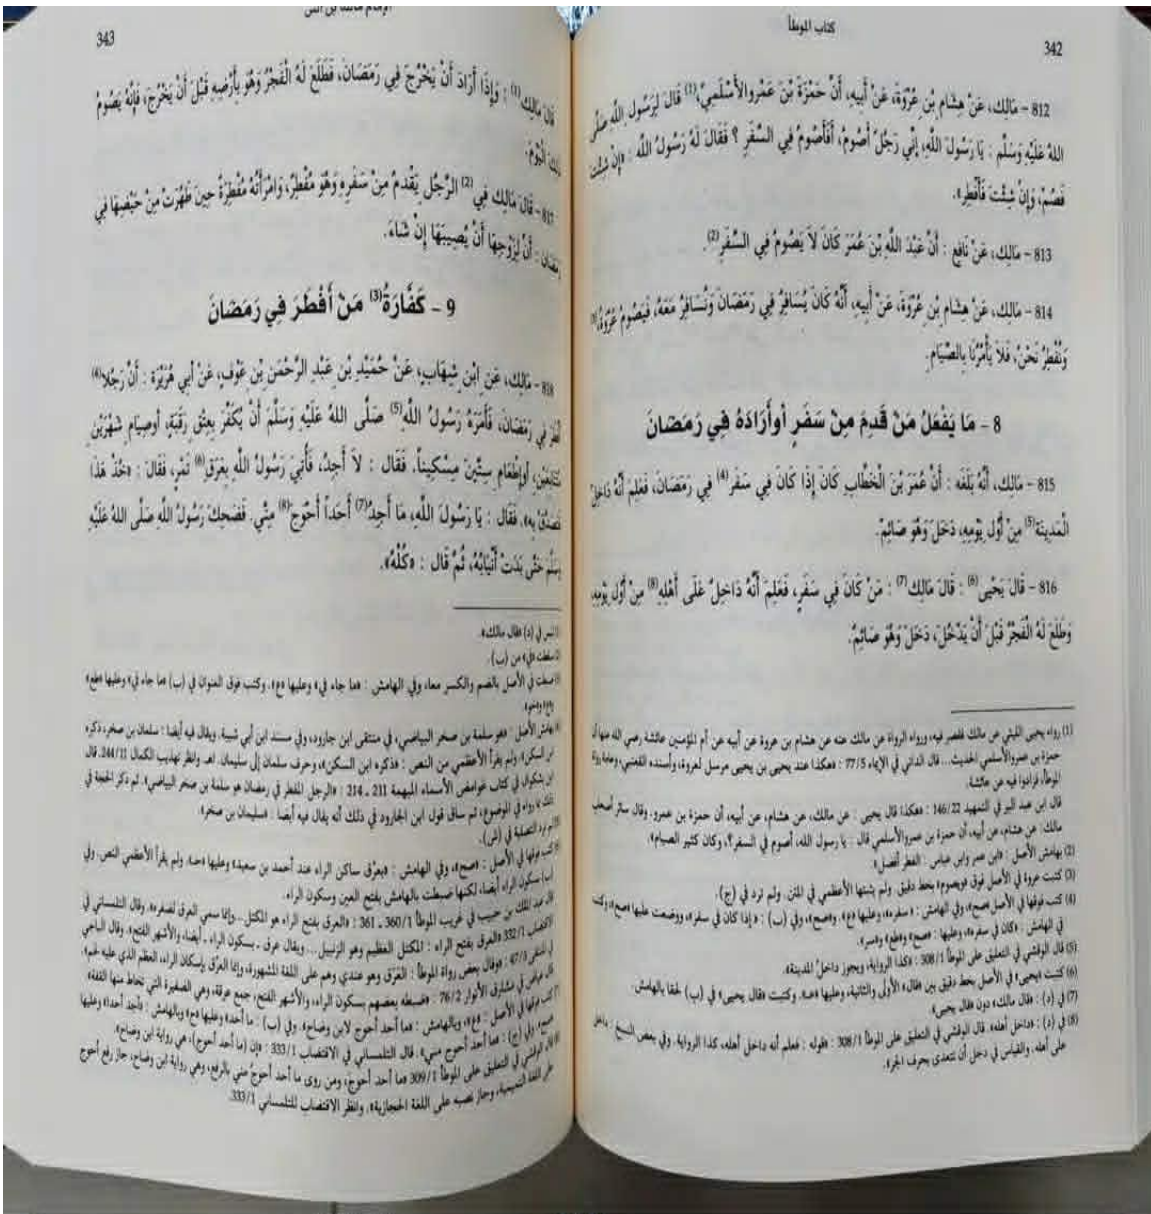 كتاب الموطأ
342
812 – مَالِك، عَنْ هِشَامِ بْنِ عُرْوَةَ، عَنْ أَبِيهِ، أَنَّ حَمْزَةَ بْنَ عَمْرٍوالأَسْلَمِيَّ،(1) قَالَ لِرَسُولِ اللَّهِ صَلَّى
اللهُ عَلَيْهِ وَسَلَّم : يَا رَسُولَ اللَّهِ، إِنِّي رَجُلٌ أَصُومُ، أَفَأَصُومُ فِي السَّفَرِ ؟ فَقَالَ لَهُ رَسُولُ اللَّه : «إِنْ شِئْتَ
فَصُمْ، وَإِنْ شِئْتَ فَأَفْطِر».
813 – مَالِك، عَنْ نَافِع : أَنَّ عَبْدَ اللَّهِ بْنَ عُمَرَ كَانَ لاَ يَصُومُ فِي السَّفَرِ(2).
814 – مَالِك، عَنْ هِشَامِ بْنِ عُرْوَةَ، عَنْ أَبِيهِ، أَنَّهُ كَانَ يُسَافِرُ فِي رَمَضَانَ وَنُسَافِرُ مَعَهُ، فَيَصُومُ عُرْوَةُ،(3)
وَنُفْطِرُ نَحْنُ، فَلاَ يَأْمُرُنَا بِالصِّيَامِ.
8 – مَا يَفْعَلُ مَنْ قَدِمَ مِنْ سَفَرٍ أوأَرَادَهُ فِي رَمَضَانَ
815 – مَالِك، أَنَّهُ بَلَغَه : أَنَّ عُمَرَ بْنَ الْخَطَّابِ كَانَ إِذَا كَانَ فِي سَفَرٍ(4) فِي رَمَضَانَ، فَعَلِمَ أَنَّهُ دَاخِلٌ
الْمَدِينَةَ(5) مِنْ أَوَّلِ يَوْمِهِ، دَخَلَ وَهُوَ صَائِمٌ.
816 – قَالَ يَحْيَى(6) : قَالَ مَالِك(7) : مَنْ كَانَ فِي سَفَرٍ، فَعَلِمَ أَنَّهُ دَاخِلٌ عَلَى أَهْلِهِ(8) مِنْ أَوَّلِ يَوْمِهِ،
وَطَلَعَ لَهُ الْفَجْرُ قَبْلَ أَنْ يَدْخُلَ، دَخَلَ وَهُوَ صَائِمٌ.
(1) رواه يحيى الليثي عن مالك فقصر فيه، ورواه الرواة عن مالك عنه عن هشام بن عروة عن أبيه عن أم المؤمنين عائشة رضي الله عنها أن
حمزة بن عمروالأسلمي الحديث... قال الداني في الإيماء 77/5 : «هكذا عند يحيى بن يحيى مرسل لعروة، وأسنده القعنبي، وعامة رواة
الموطأ، فزادوا فيه عن عائشة.
قال ابن عبد البر في التمهيد 146/22 : «هكذا قال يحيى : عن مالك، عن هشام، عن أبيه، أن حمزة بن عمرو. وقال سائر أصحاب
مالك: عن هشام، عن أبيه، أن حمزة بن عمروالأسلمي قال : يا رسول الله، أصوم في السفر؟، وكان كثير الصيام».
(2) بهامش الأصل : «ابن عمر وابن عباس : الفطر أفضل».
(3) كتبت عروة في الأصل فوق «ويصوم» بخط دقيق. ولم يثبتها الأعظمي في المتن. ولم ترد في (ج).
(4) كتب فوقها في الأصل«صح»، وفي الهامش : «سفره»، وعليها «ع». و«صح»، وفي (ب) : «إذا كان في سفر»، ووضعت عليها «صح» وكتب
في الهامش : «كان في سفره»، وعليها : «صح» و«طع» و«سر».
(5) قال الوقشي في التعليق على الموطأ 308/1 : «كذا الرواية، ويجوز داخلُ المدينة».
(6) كتبت «يحيى» في الأصل بخط دقيق بين «قال» الأولى والثانية، وعليها «عـ». وكتبت «قال يحيى» في (ب) لحقا بالهامش.
(7) في (د) : «قال مالك» دون «قال يحيى».
(8) في (د) : «داخل أهله». قال الوقشي في التعليق على الموطأ 308/1 : «قوله : فعلم أنه داخل أهله، كذا الرواية. وفي بعض النسخ : داخل
على أهله. والقياس في دخل أن تتعدى بحرف الجر».
343
قَالَ مَالِك(1) : وَإِذَا أَرَادَ أَنْ يَخْرُجَ فِي رَمَضَانَ، فَطَلَعَ لَهُ الْفَجْرُ وَهُوَ بِأَرْضِهِ قَبْلَ أَنْ يَخْرُجَ، فَإِنَّهُ يَصُومُ
ذَلِكَ الْيَوْمَ.
817 – قَالَ مَالِك فِي(2) الرَّجُلِ يَقْدَمُ مِنْ سَفَرِهِ وَهُوَ مُفْطِرٌ، وَامْرَأَتُهُ مُفْطِرَةٌ حِينَ طَهُرَتْ مِنْ حَيْضِهَا فِي
رَمَضَان : أَنَّ لِزَوْجِهَا أَنْ يُصِيبَهَا إِنْ شَاءَ.
9 – كَفَّارَةُ(3) مَنْ أَفْطَرَ فِي رَمَضَانَ
818 – مَالِك، عَنِ ابْنِ شِهَابٍ، عَنْ حُمَيْدِ بْنِ عَبْدِ الرَّحْمَنِ بْنِ عَوْفٍ، عَنْ أَبِي هُرَيْرَة : أَنَّ رَجُلاً(4)
أَفْطَرَ فِي رَمَضَانَ، فَأَمَرَهُ رَسُولُ اللَّهِ(5) صَلَّى اللهُ عَلَيْهِ وَسَلَّمَ أَنْ يُكَفِّرَ بِعِتْقِ رَقَبَةٍ، أوصِيَامِ شَهْرَيْنِ
مُتَتَابِعَيْنِ، أوإِطْعَامِ سِتِّينَ مِسْكِيناً. فَقَال : لاَ أَجِدُ، فَأُتِيَ رَسُولُ اللَّهِ بِعَرَقِ(6) تَمْرٍ، فَقَال : «خُذْ هَذَا
فَتَصَدَّقْ بِهِ». فَقَال : يَا رَسُولَ اللَّهِ، مَا أَجِدُ(7) أَحَداً أَحْوَجَ(8) مِنِّي. فَضَحِكَ رَسُولُ اللَّهِ صَلَّى اللهُ عَلَيْهِ
وَسَلَّمَ حَتَّى بَدَتْ أَنْيَابُهُ، ثُمَّ قَال : «كُلْهُ».
ليس في (د) «قال مالك».
سقطت «في» من (ب).
في الأصل بالضم والكسر معا، وفي الهامش : «ما جاء في» وعليها «ع». وكتب فوق العنوان في (ب) «ما جاء في» وعليها «طع»
بهامش الأصل : «هو سلمة بن صخر البياضي، في منتقى ابن جارود، وفي مسند ابن أبي شيبة. ويقال فيه أيضا : سلمان بن صخر، ذكره
ابن السكن». ولم يقرأ الأعظمي من النص : «ذكره ابن السكن»، وحرف سلمان إلى سليمان. اهـ. وانظر تهذيب الكمال 244/11. قال
ابن بشكوال في كتاب غوامض الأسماء المبهمة 211 ـ 214 : «الرجل المفطر في رمضان هو سلمة بن صخر البياضي». ثم ذكر الحجة في
ذلك بما رواه في الموضوع، ثم ساق قول ابن الجارود في ذلك أنه يقال فيه أيضا : «سليمان بن صخر».
لم ترد التصلية في (ش).
كتب فوقها في الأصل : «صح»، وفي الهامش : «بعرْق ساكن الراء عند أحمد بن سعيد» وعليها «حـ». ولم يقرأ الأعظمي النص. وفي
(ب) سكون الراء أيضا، لكنها ضبطت بالهامش بفتح العين وسكون الراء.
قال عبد الملك بن حبيب في غريب الموطأ 360/1 ـ 361 : «العرق بفتح الراء هو المكتل... وإنما سمي العرق لضفره». وقال التلمساني في
الاقتضاب 332/1 «العرق بفتح الراء : المكتل العظيم وهو الزنبيل ... ويقال عرق ـ بسكون الراء ـ أيضا، والأشهر الفتح». وقال الباجي
في المنتقى 47/3 : «وقال بعض رواة الموطأ : العَرْق وهو عندي وهم على اللغة المشهورة، وإنما العرْق بإسكان الراء، العظم الذي عليه لحم».
قال عياض في مشارق الأنوار 76/2 : «ضبطه بعضهم بسكون الراء، والأشهر الفتح، جمع عرقة، وهي الضفيرة التي تخاط منها القفة»
كتب فوقها في الأصل : «ع»، وبالهامش : «ما أحد أحوج لابن وضاح». وفي (ب) : ما «أحد» وعليها «ح» وبالهامش : «أجد أحدا» وعليها
«صح». وفي (ج) : «ما أحد أحوج مني». قال التلمساني في الاقتضاب 333/1 : «إن (ما أحد أحوج)، هي رواية ابن وضاح».
قال الوقشي في التعليق على الموطأ 309/1 «ما أحد أحوجَ، ومن روى ما أحد أحوجُ مني بالرفع، وهي رواية ابن وضاح، جاز رفع أحوج
على اللغة التميمية، وجاز نصبه على اللغة الحجازية». وانظر الاقتضاب للتلمساني 333/1.